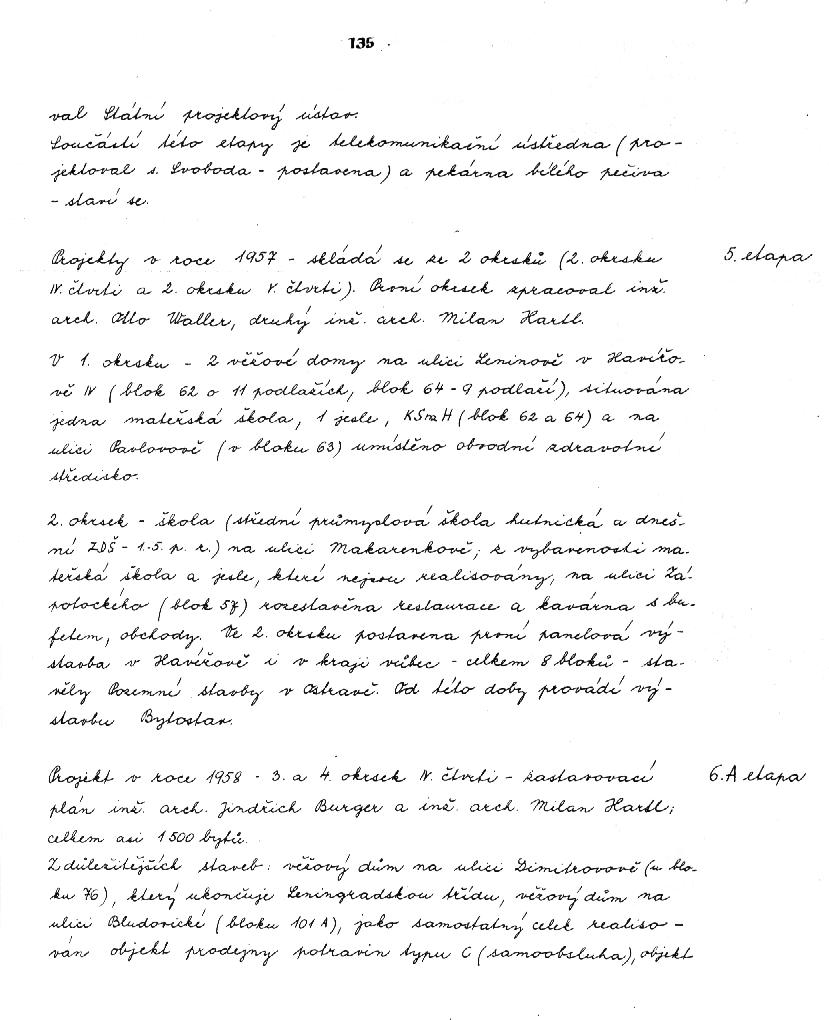 135
val Státní projektový ústav.
Součástí této etapy je telekomunikační ústředna (pro-
jektoval s. Svoboda - postavena) a pekárna bílého pečiva
- staví se.
Projekty v roce 1957 - skládá se ze 2 okrsků (2. okrsku
5. etapa
IV. čtvrti a 2. okrsku V. čtvrti). První okrsek zpracoval inž.
arch. Otto Waller, druhý inž. arch. Milan Hartl.
V 1. okrsku - 2 věžové domy na ulici Leninově v Havířo-
vě IV (blok 62 o 11 podlažích, blok 64 - 9 podlaží), situována
jedna mateřská škola, 1 jesle, KSmH (blok 62 a 64) a na
ulici Pavlovově (v bloku 63) umístěno obvodní zdravotní
středisko.
2. okrsek - škola (střední průmyslová škola hutnická a dneš-
ní ZDŠ - 1.-5. p. r.) na ulici Makarenkově, z vybavenosti ma-
teřská škola a jesle, které nejsou realisovány, na ulici Zá-
potockého (blok 57) rozestavěna restaurace a kavárna s bu-
fetem, obchody. Ve 2. okrsku postavena první panelová vý-
stavba v Havířově i v kraji vůbec - celkem 8 bloků - sta-
věly Pozemní stavby v Ostravě. Od této doby provádí vý-
stavbu Bytostav.
Projekt v roce 1958 - 3. a 4. okrsek IV. čtvrti - zastavovací
6.A etapa
plán inž. arch. Jindřich Burger a inž. arch. Milan Hartl;
celkem asi 1500 bytů.
Z důležitějších staveb: věžový dům na ulici Dimitrovově (u blo-
ku 76), který ukončuje Leningradskou třídu, věžový dům na
ulici Bludovické (bloku 101 A), jako samostatný celek realiso-
ván objekt prodejny potravin typu C (samoobsluha), objekt